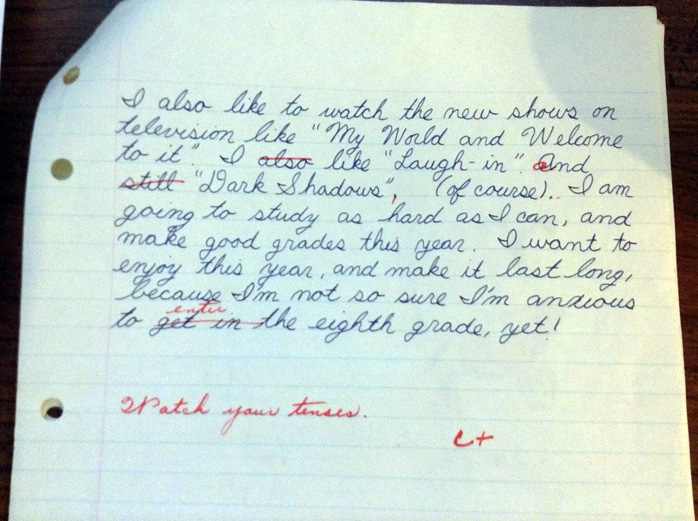 I also like to watch the new shows on
television like "My World and Welcome
to it". I also like "Laugh-in". and
still "Dark Shadows", (of course). I am
going to study as hard as I can, and
make good grades this year. I want to
enjoy this year, and make it last long,
because I'm not so sure I'm anxious
enter
to get in the eighth grade, yet!
Watch your tenses.
C+